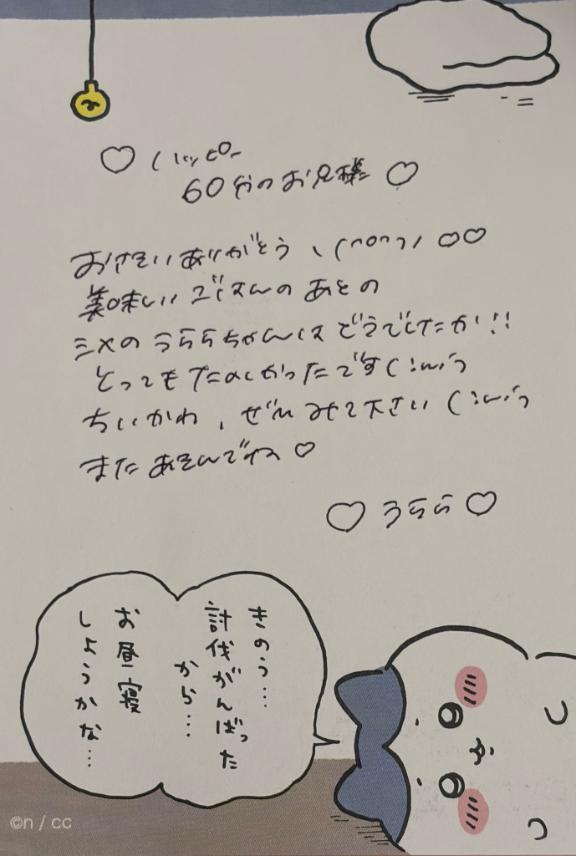 ♡ ハッピー
60分のお兄様 ♡
おさそいありがとう、(^o^)/ ♡♡
美味しいごはんのあとの
シメのうららちゃんは どうでしたか!!
とってもたのしかったです
ちいかわ、ぜひみて下さい
またあそんでね ♡
♡ うらら ♡
きのう…
討伐がんばった
から…
お昼寝
しようかな…
©n / cc